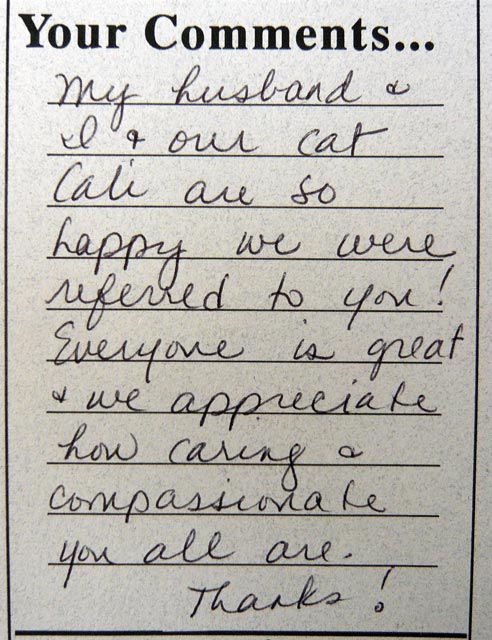 Your Comments...
My husband &
I & our cat
Cali are so
happy we were
referred to you!
Everyone is great
& we appreciate
how caring &
compassionate
you all are.
Thanks!